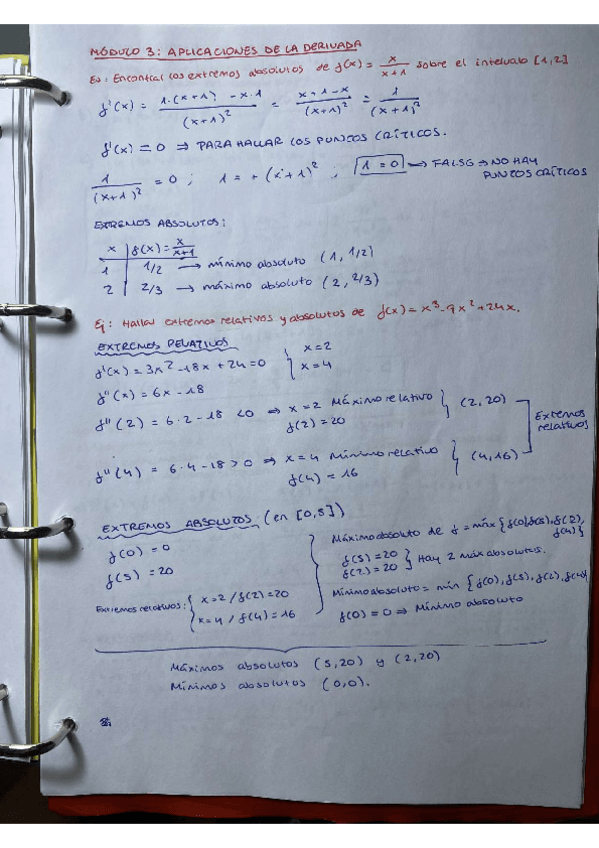 MÓDULO 3: APLICACIONES DE LA DERIVADA
Ej: Encontrar los extremos absolutos de f(x) = x/(x+1) sobre el intervalo [1,2]
f'(x) = (1·(x+1) - x·1)/(x+1)² = (x+1-x)/(x+1)² = 1/(x+1)²
f'(x) = 0 ⇒ PARA HALLAR LOS PUNTOS CRÍTICOS.
1/(x+1)² = 0 ; 1 = + (x+1)² ; 1=0 → FALSO ⇒ NO HAY
PUNTOS CRÍTICOS
EXTREMOS ABSOLUTOS:
x | f(x) = x/(x+1)
1 | 1/2 → mínimo absoluto (1, 1/2)
2 | 2/3 → máximo absoluto (2, 2/3)
Ej: Hallar extremos relativos y absolutos de f(x) = x³-9x²+24x.
EXTREMOS RELATIVOS
f'(x) = 3x²-18x+24=0 { x=2
x=4
f''(x) = 6x-18
f''(2) = 6·2-18 <0 ⇒ x=2 Máximo relativo } (2,20)
f(2) = 20
Extremos
relativos
f''(4) = 6·4-18 >0 ⇒ x=4 Mínimo relativo } (4,16)
f(4) = 16
EXTREMOS ABSOLUTOS (en [0,5])
f(0) = 0
f(5) = 20
Extremos relativos: { x=2 / f(2)=20
x=4 / f(4)=16
Máximo absoluto de f = máx { f(0), f(5), f(2),
f(4) }
f(5) = 20
f(2) = 20 } Hay 2 máx absolutos.
Mínimo absoluto = mín { f(0), f(5), f(2), f(4) }
f(0) = 0 ⇒ Mínimo absoluto
Máximos absolutos (5,20) y (2,20)
Mínimos absolutos (0,0).